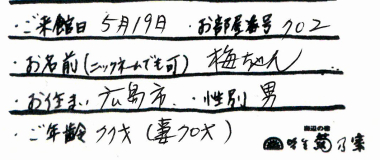 ・ご来館日 5月19日 ・お部屋番号 702
・お名前(ニックネームでも可) 梅ちゃん
・お住まい 広島市 ・性別 男
・ご年齢 77才 (妻70才)
海辺の宿